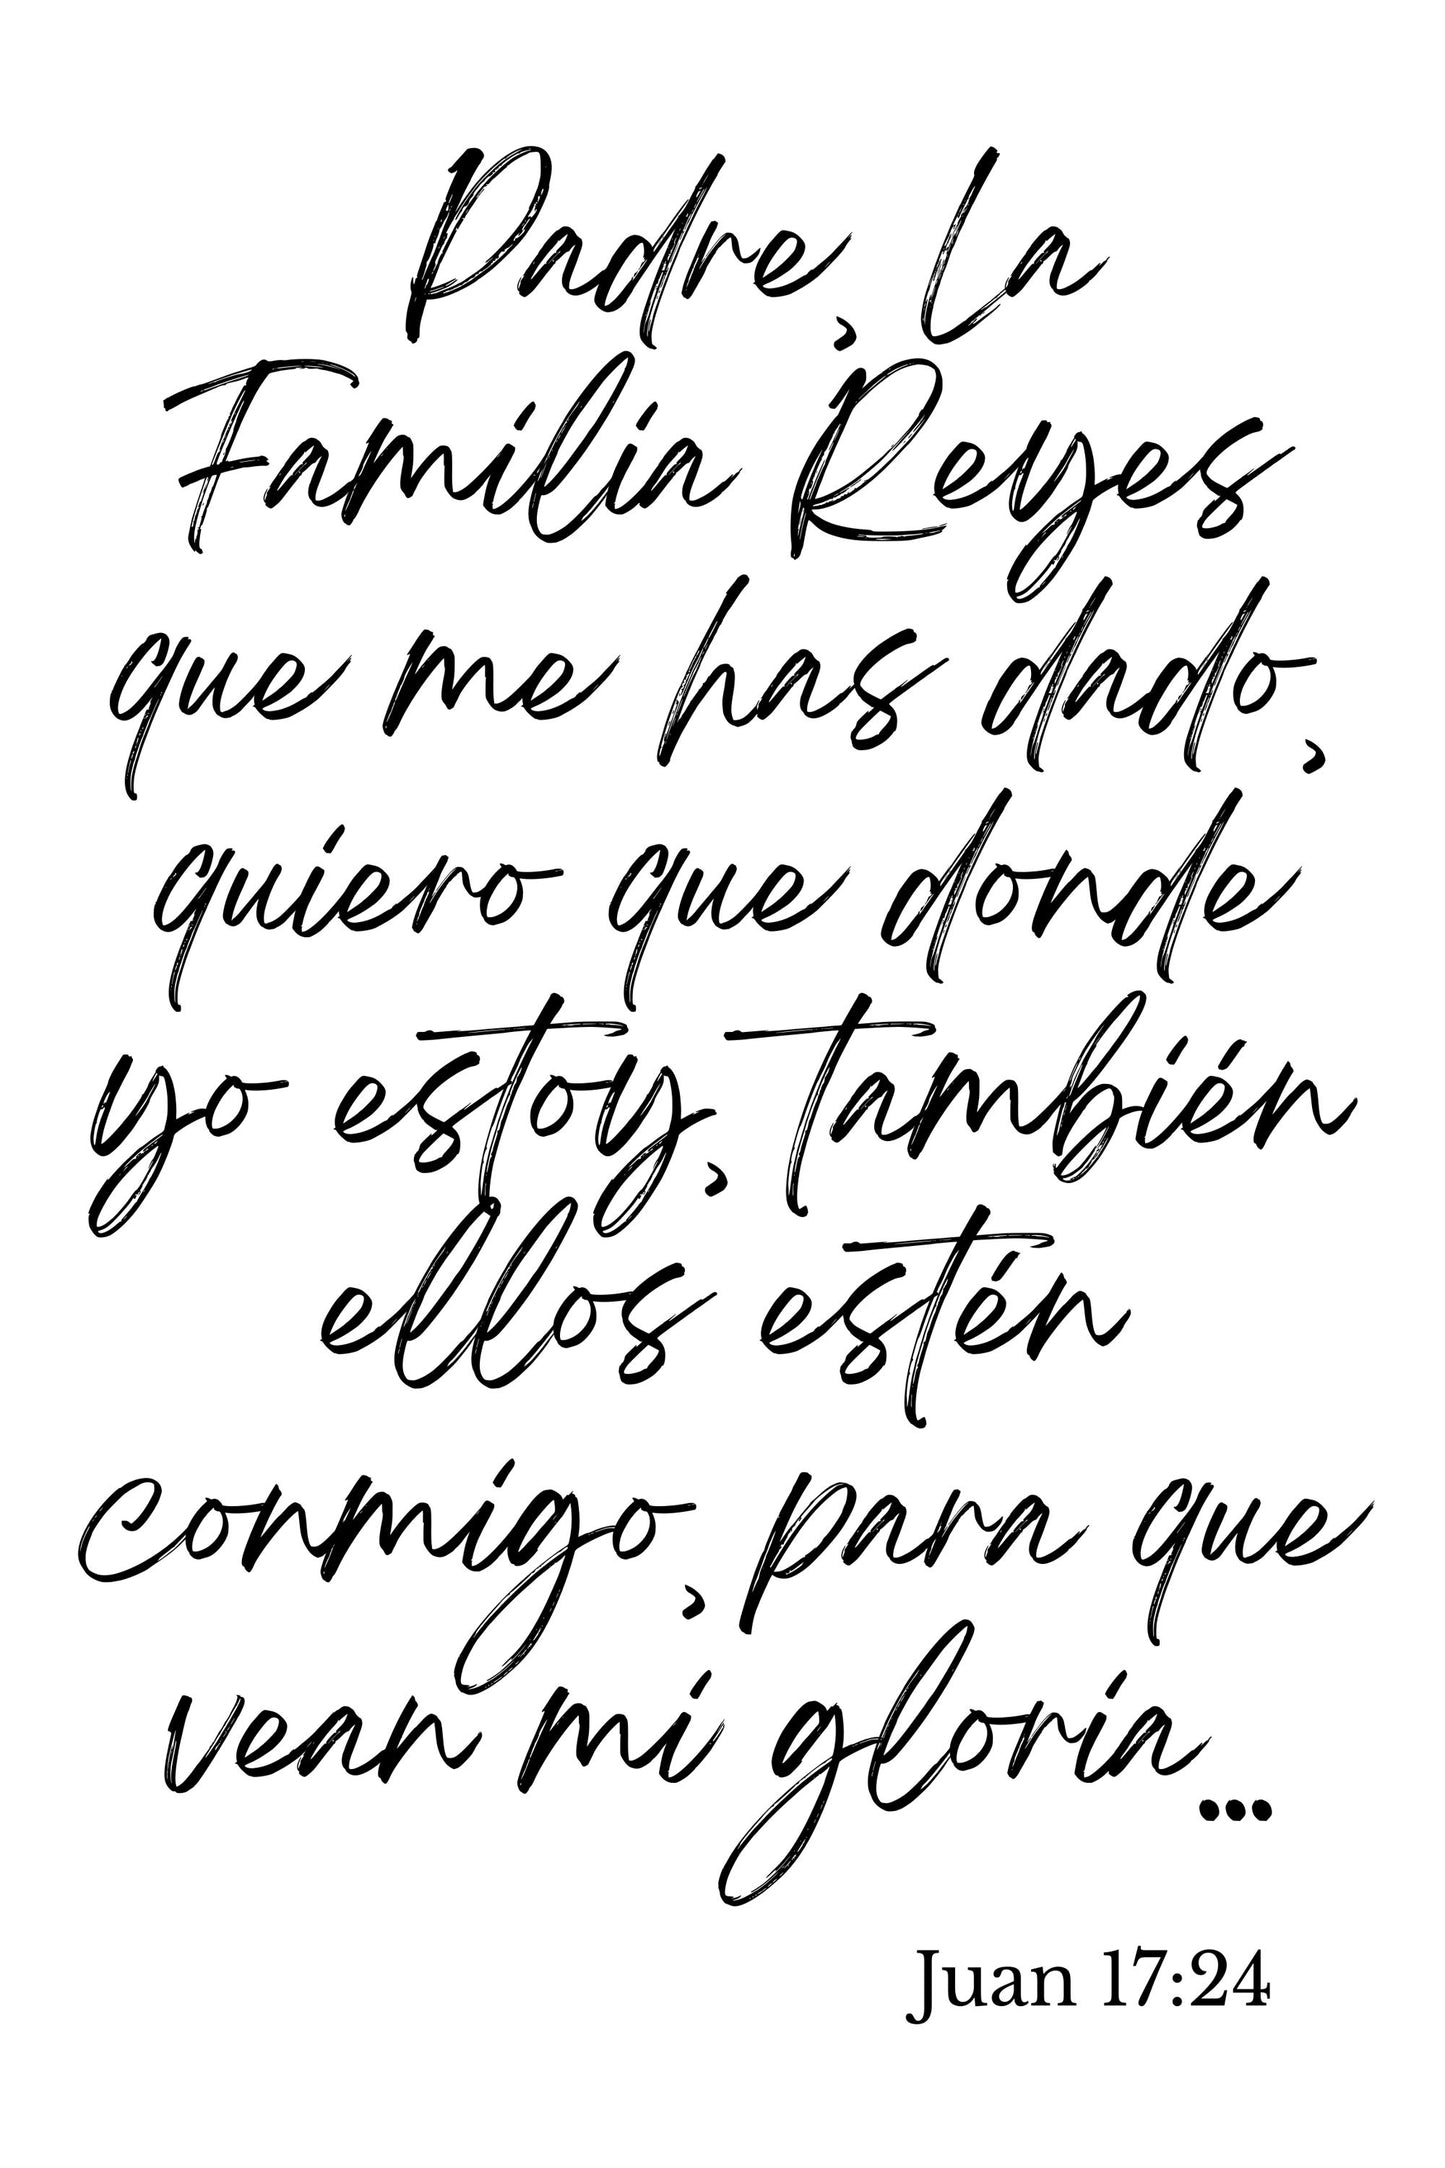 Padre, la
Familia Reyes
que me has dado,
quiero que donde
yo estoy, también
ellos estén
conmigo, para que
vean mi gloria...
Juan 17:24